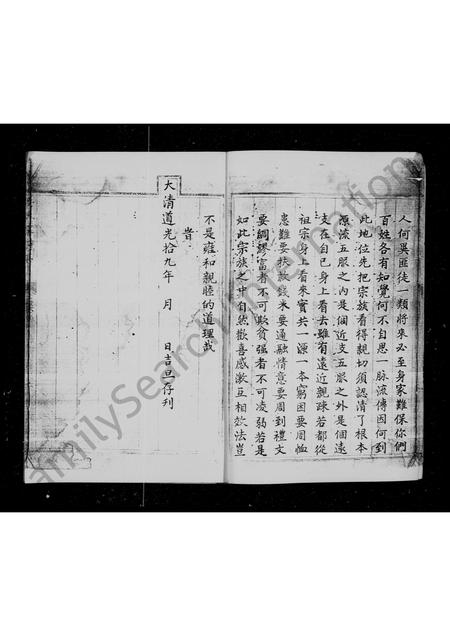 人何異匪徒一類將來必至身家難保你們
百姓各有知覺何不自思一脉流傳因何到
此地位先把宗族看得親切須認清了根本
源流五服之內是個近支五服之外是個遠
支在自己身上看去雖有遠近親疎若都從
祖宗身上看來實共一源一本窮困要周恤
患難要扶救錢米要通融情意要周到禮文
要綢繆富者不可欺貧强者不可凌弱若是
如此宗族之中自然歡喜感激互相效法豈
不是雍和親睦的道理哉
旹
大清道光拾九年 月 日吉旦存列
FamilySearch International